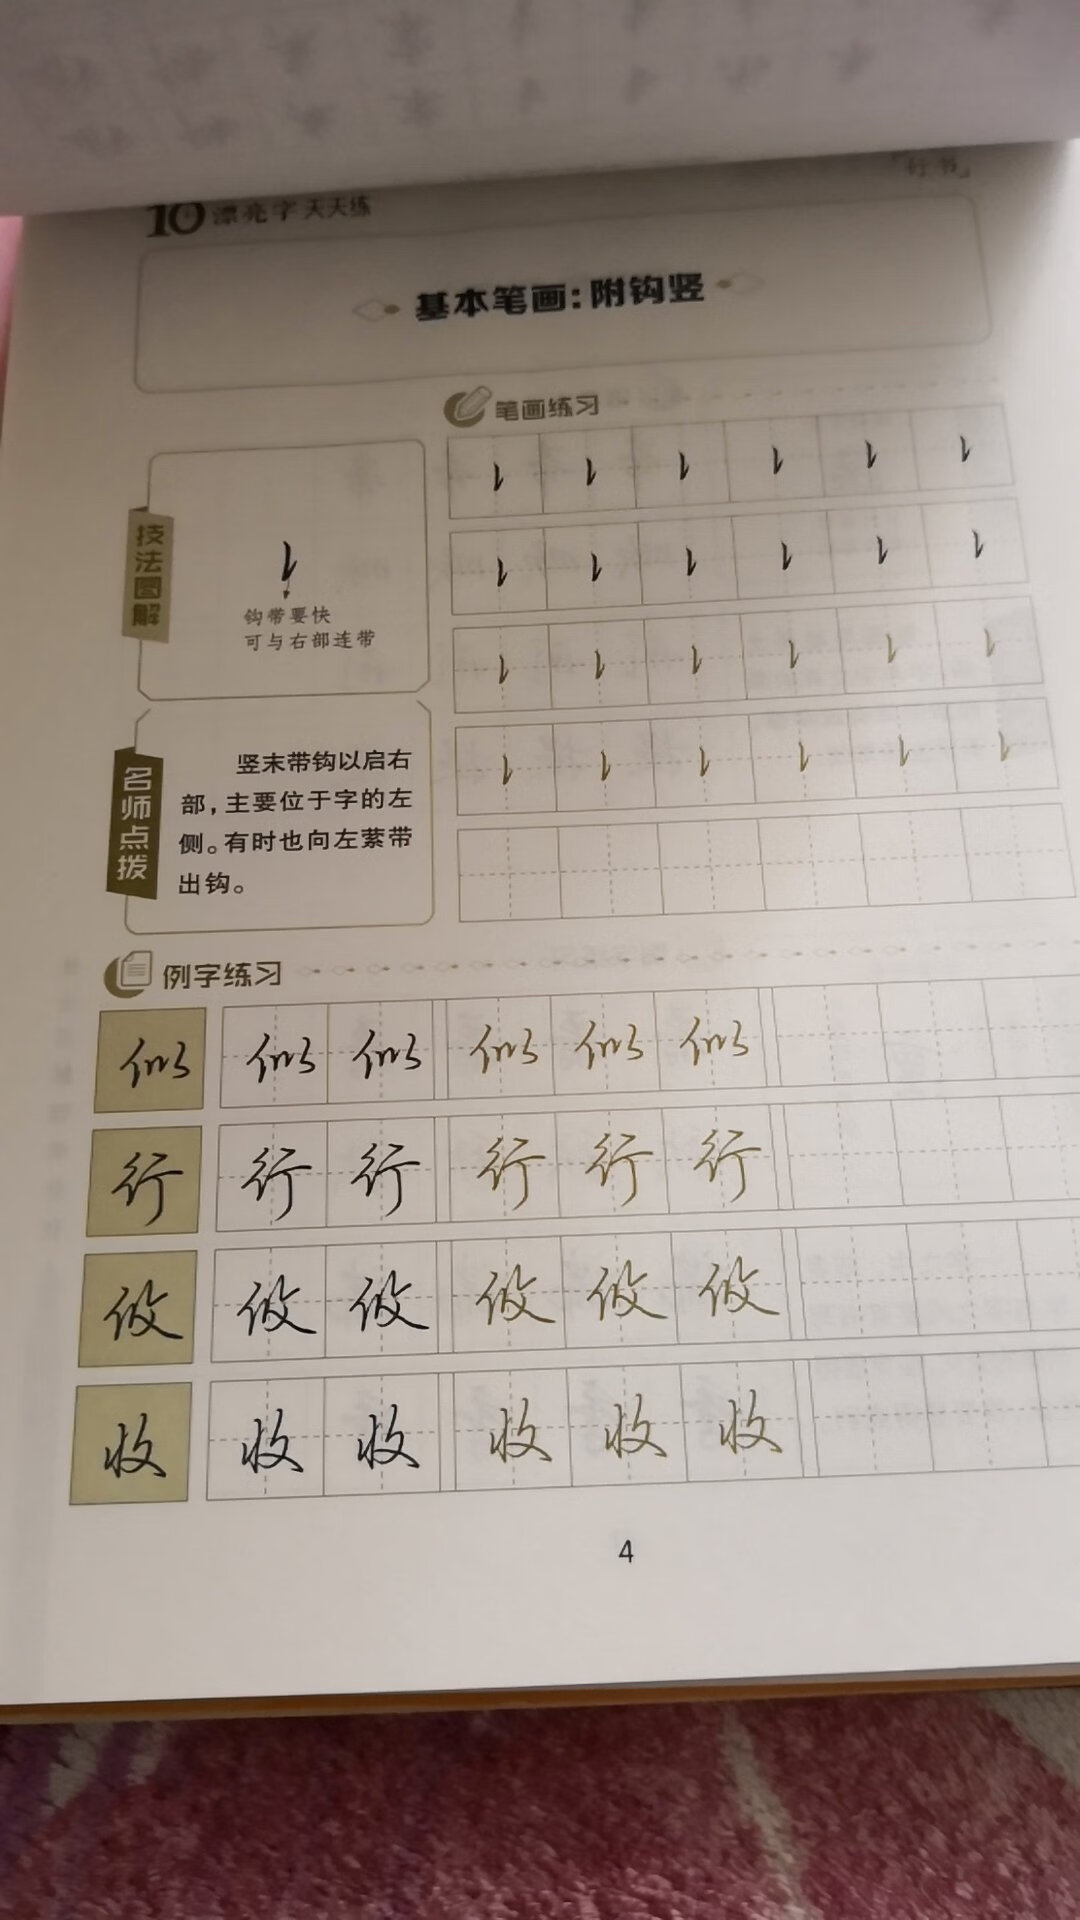 「行书」
10 漂亮字天天练
基本笔画：附钩竖
笔画练习
技法图解
钩带要快
可与右部连带
名师点拨
竖末带钩以启右
部，主要位于字的左
侧。有时也向左萦带
出钩。
例字练习
似 似 似 似 似 似
行 行 行 行 行 行
攸 攸 攸 攸 攸 攸
收 收 收 收 收 收
4